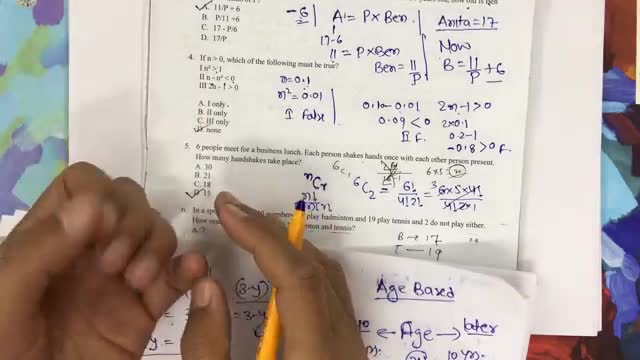 A. 11/P + 6
B. P/11 +6
C. 17 - P/6
D. 17/P
-6
A = P×Ben
17-6
11 = P×Ben
Ben = 11/P
Anita = 17
Now
B = 11/P + 6
4. If n > 0, which of the following must be true?
I n² > 1
II n - n² < 0
III 2n - 1 > 0
A. I only
B. II only
C. III only
D. none
n=0.1
n² = 0.01
I False
0.1 - 0.01
0.09 < 0
II F.
2n-1>0
2×0.1
0.2-1
-0.8>0 F.
5. 6 people meet for a business lunch. Each person shakes hands once with each other person present.
How many handshakes take place?
A. 30
B. 21
C. 18
D. 15
nCr
6C1
6C2 = 6!/4!2! = 6×5×4!/4!2×1
6×5
30
6. In a members play badminton and 19 play tennis and 2 do not play either.
How and tennis?
A. 7
B → 17
T — 19
(3-y)
Age Based
Age
later
10 yrs.